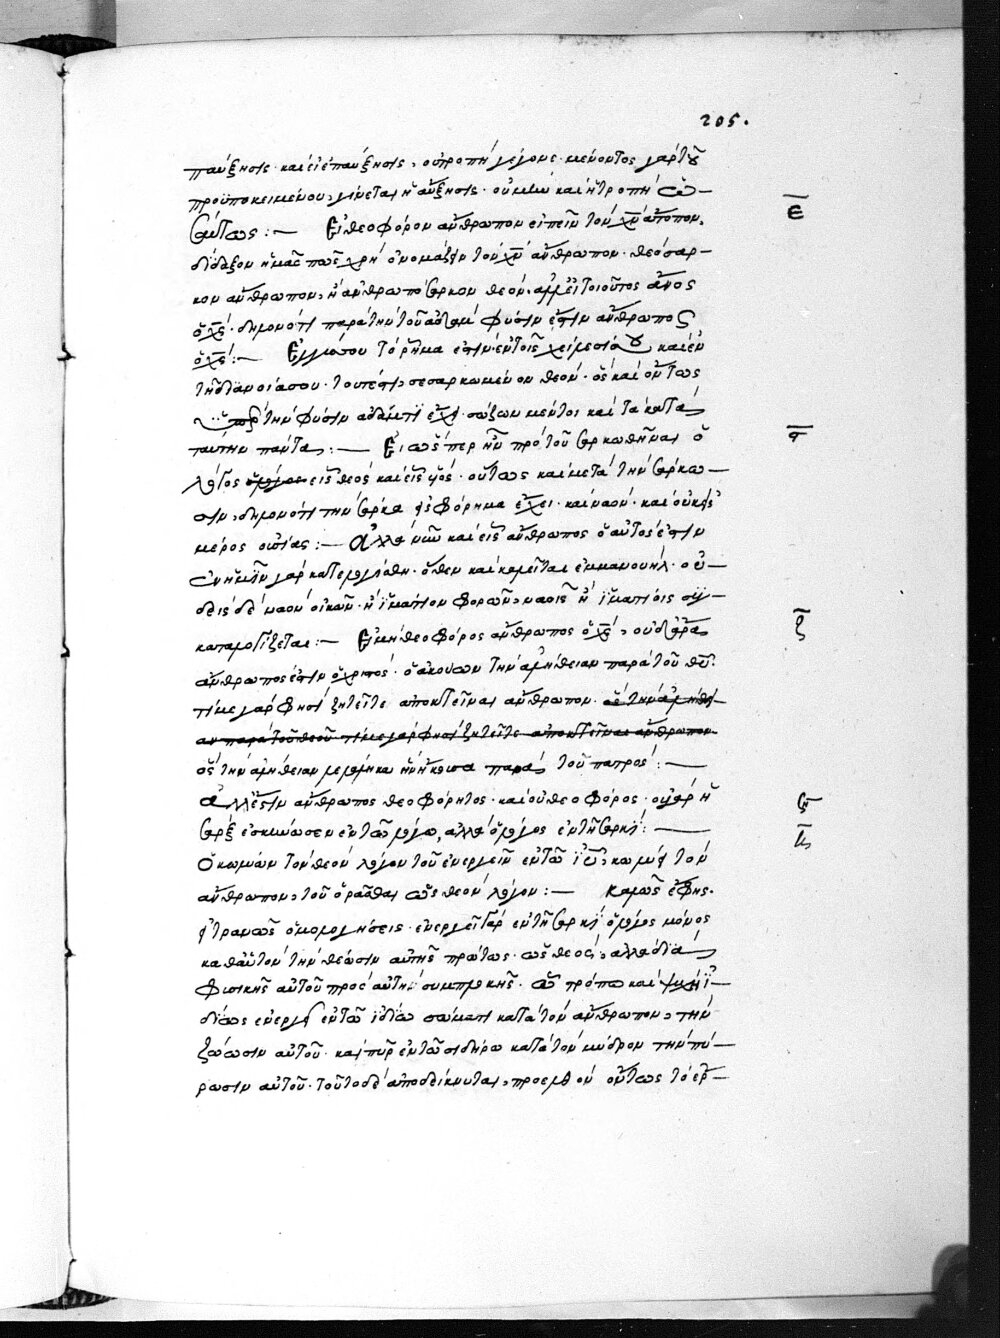 205.
παύξησις· και εἰ ἐπαύξησις, οὐ τροπὴ γέγονε· μένοντος γὰρ τοῦ
προϋποκειμένου, γίνεται ἡ αὔξησις· οὐκοῦν καὶ ἡ τροπὴ ὡ-
σαύτως:— Εἰ θεοφόρον ἄνθρωπον εἰπεῖν τὸν χν̅ ἄτοπον,
ε̅
δίδαξον ἡμᾶς πῶς χρὴ ὀνομάζειν τὸν χν̅ ἄνθρωπον· θεόσαρ-
κον ἄνθρωπον, ἢ ἀνθρωπόσαρκον θεόν· ἀλλ' εἰ τοιοῦτος ἄνος
ὁ χς̅· δηλονότι παρὰ τὴν τοῦ ἀδὰμ φύσιν ἐστὶν ἄνθρωπος
ὁ χς̅:— τὸ ῥῆμα ἐστὶν ἐν τοῖς χείλεσί σου καὶ ἐν
τῇ διανοίᾳ σου· τουτέστι σεσαρκωμένον θεόν· ὃς καὶ ὄντως
τὴν φύσιν ἀδάμ τι ἔχει· σώζων μέντοι καὶ τὰ κατὰ
ταύτην πάντα:— Εἰ ὥσπερ ἦν πρὸ τοῦ σαρκωθῆναι ὁ
ϛ̅
λόγος εἷς θεός καὶ εἷς υἱός· οὕτως καὶ μετὰ τὴν σάρκω-
σιν, δηλονότι τὴν σάρκα φόρημα ἔχει· καὶ ναόν· καὶ οὐκ εἰς
μέρος οὐσίας:— Ἀλλὰ νῦν καὶ εἷς ἄνθρωπος ὁ αὐτός ἐστιν
ἐν ἡμῖν γὰρ κατεμολύνθη· ὅθεν καὶ καλεῖται ἐμμανουήλ· οὐ-
δεὶς δὲ ναὸν οἰκῶν· ἢ ἱμάτιον φορῶν, ναοῖς ἢ ἱματίοις συγ-
καταλογίζεται:— Εἰ μὴ θεοφόρος ἄνθρωπος ὁ χς̅, οὐδ' ἄρα
ζ̅
ἄνθρωπός ἐστιν ὁ χριστός· ὁ ἀκούων τὴν ἀλήθειαν παρὰ τοῦ θυ̅·
τί με γὰρ φησὶ ζητεῖτε ἀποκτεῖναι ἄνθρωπον· ὃς τὴν ἀλήθει-
αν παρὰ τοῦ θεοῦ τί με γὰρ φησὶ ζητεῖτε ἀποκτεῖναι ἄνθρωπον
ὃς τὴν ἀλήθειαν λελάληκα ἣν ἤκουσα παρὰ τοῦ πατρός:—
ἀλλ' ἔστιν ἄνθρωπος θεοφόρητος· καὶ οὐ θεοφόρος· οὐ γὰρ ἡ
η̅
σὰρξ ἐσκήνωσεν ἐν τῷ λόγῳ, ἀλλὰ ὁ λόγος ἐν τῇ σαρκί:—
Ὁ κωλύων τὸν θεὸν λόγον τοῦ ἐνεργεῖν ἐν τῷ ιυ̅, κωλύει τὸν
ἄνθρωπον, τοῦ ὁρᾶσθαι ὡς θεὸν λόγον:— καλῶς ἔφης.
εἰ τρανῶς ὁμολογήσεις· ἐνεργεῖ γὰρ ἐν τῇ σαρκὶ ὁ λόγος μόνος
καθ' αὑτὸν τὴν θέωσιν αὐτῆς πρώτως· ὡς θεός, ἀλλὰ διὰ
φυσικῆς αὐτοῦ πρὸς αὐτὴν συμπλοκῆς· ᾧ τρόπῳ καὶ ψυχὴ ἰ-
δίως ἐνεργεῖ ἐν τῷ ἰδίῳ σώματι κατὰ τὸν ἄνθρωπον, τὴν
ζώωσιν αὐτοῦ· καὶ πῦρ ἐν τῷ σιδήρῳ κατὰ τὸν μύδρον τὴν πύ-
ρωσιν αὐτοῦ· τοῦτο δὲ ἀποδείκνυται, προελθὸν οὕτως τὸ ἐρ-